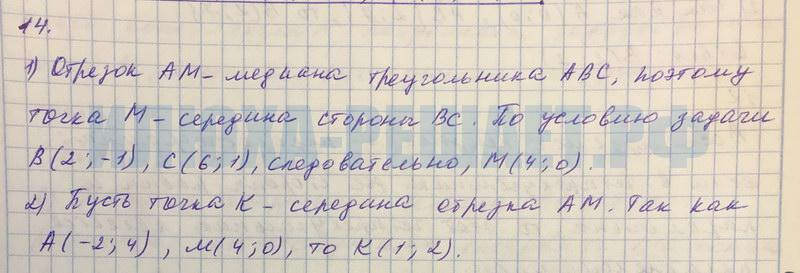 14.
1) Отрезок АМ – медиана треугольника АВС, поэтому
точка М – середина стороны ВС. По условию задачи
В(2;-1), С(6;1), следовательно, М(4;0).
2) Пусть точка К – середина отрезка АМ. Так как
А(-2;4), М(4;0), то К(1;2).